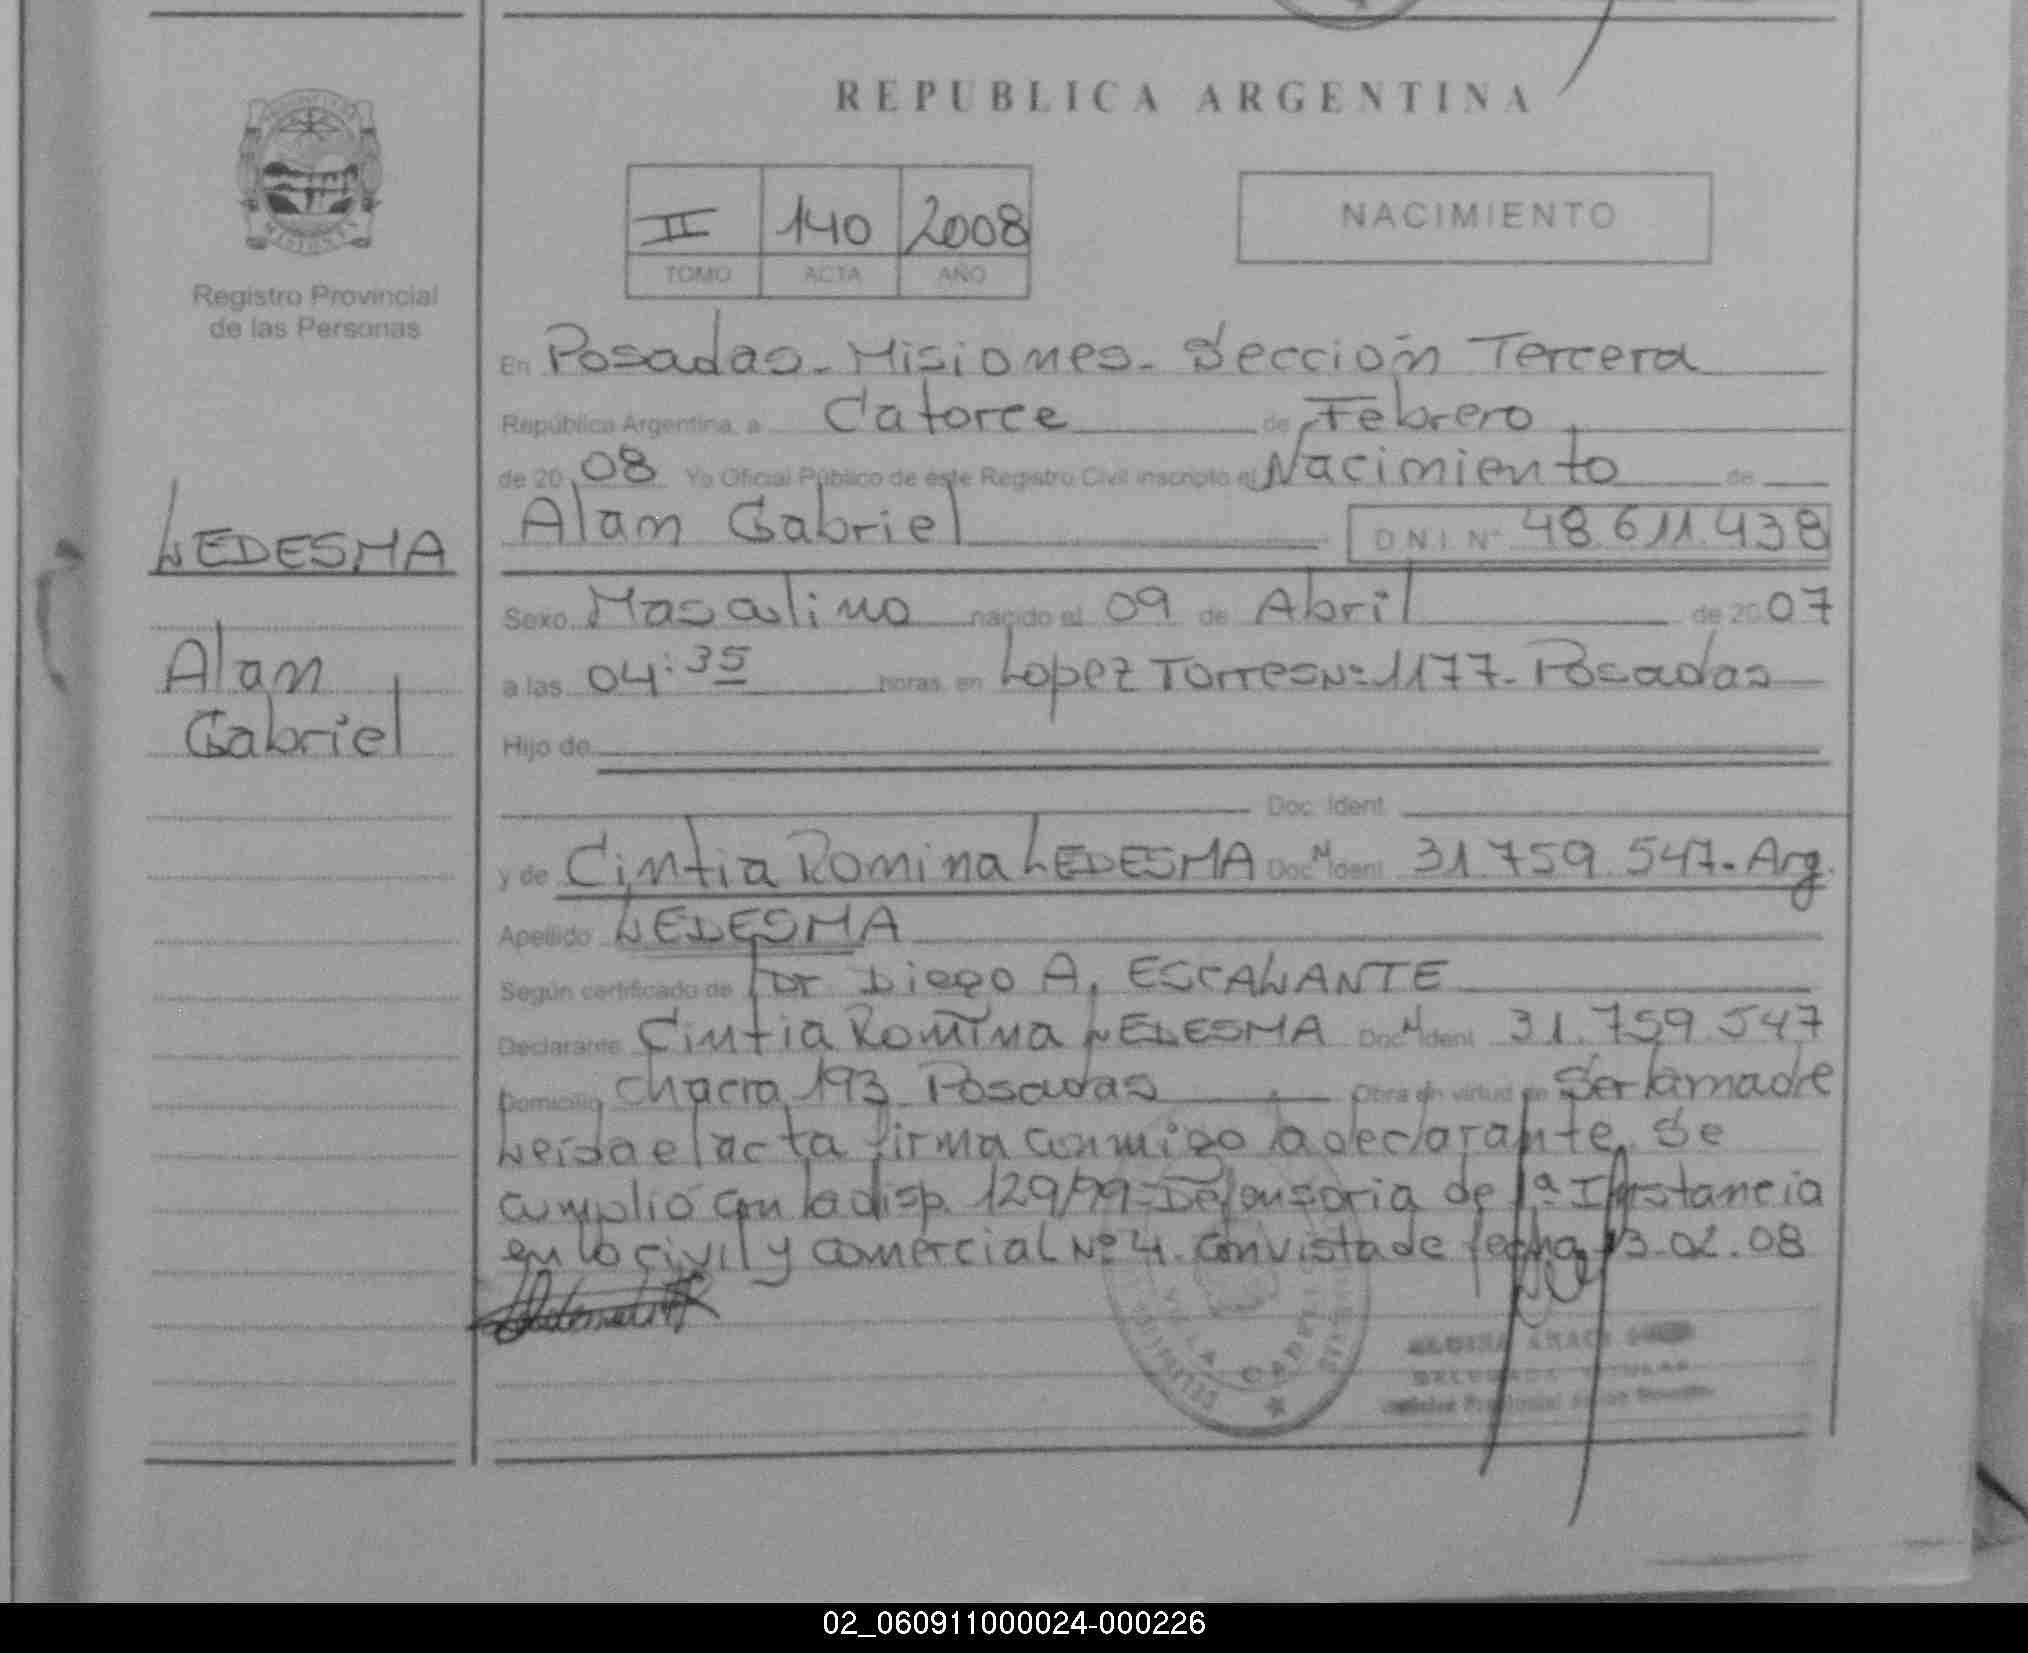 REPUBLICA ARGENTINA
MISIONES
Registro Provincial
de las Personas
II 140 2008
TOMO ACTA AÑO
NACIMIENTO
En Posadas - Misiones - Sección Tercera
República Argentina, a Catorce de Febrero
de 2008 Yo Oficial Público de este Registro Civil inscripto el Nacimiento de
Alam Gabriel D N I Nº 48.611.438
LEDESMA
Alam
Gabriel
Sexo Masculino nacido el 09 de Abril de 2007
a las 04:35 horas, en Lopez Torres Nº 1177 - Posadas
Hijo de
Doc. Ident.
y de Cintia Romina LEDESMA Doc. N Ident. 31.759.547 - Arg.
Apellido LEDESMA
Según certificado de Dr Diego A. ESCALANTE
Declarante Cintia Romina LEDESMA Doc. N Ident. 31.759.547
Domicilio chacra 193 Posadas Obra en virtud de Ser la madre
Leida el acta firma conmigo la declarante, Se
cumplió con la disp. 129/99 - Defensoria de 1ª Instancia
en lo civil y comercial Nº 4. Con vista de fecha 13-02-08
VILLA CABELLO
02_060911000024-000226